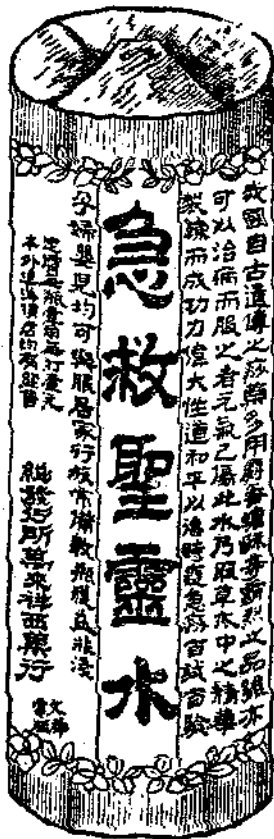 我國自古遺傳之痧藥多用麝香蟾酥等霸烈之品雖亦
可以治病而服之者元氣已傷此水乃取草木中之精華
製鍊而成功力偉大性道和平以治時疫急痧百試百驗
急救聖靈水
孕婦嬰兒均可與服居家行旅常備數瓶獲益非淺
定價每瓶壹角每打壹元
本外埠各藥店均有經售
總發行所華來祥西藥行